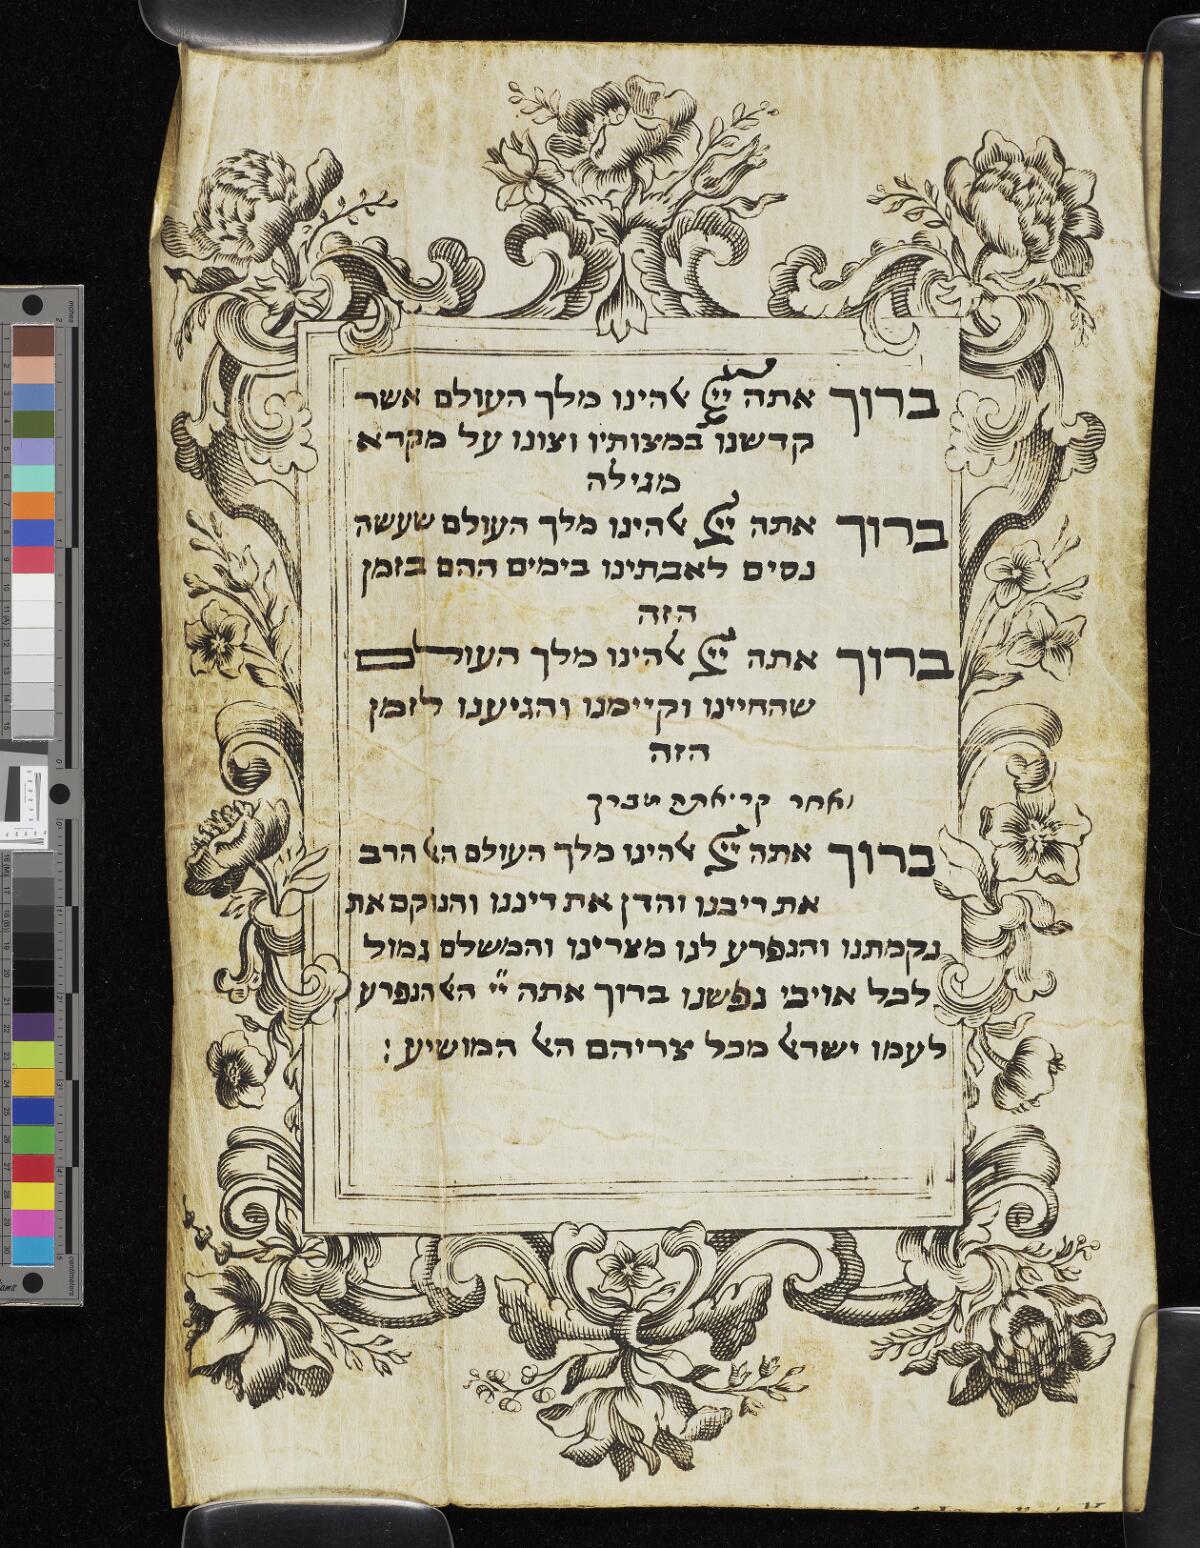 ברוך אתה ייי אלהינו מלך העולם אשר
קדשנו במצותיו וצונו על מקרא
מגילה
ברוך אתה ייי אלהינו מלך העולם שעשה
נסים לאבתינו בימים ההם בזמן
הזה
ברוך אתה ייי אלהינו מלך העולם
שהחיינו וקיימנו והגיענו לזמן
הזה
ואחר קריאתה יברך
ברוך אתה ייי אלהינו מלך העולם האל הרב
את ריבנו והדן את דיננו והנוקם את
נקמתנו והנפרע לנו מצרינו והמשלם גמול
לכל אויבי נפשנו ברוך אתה יי האל הנפרע
לעמו ישראל מכל צריהם האל המושיע :